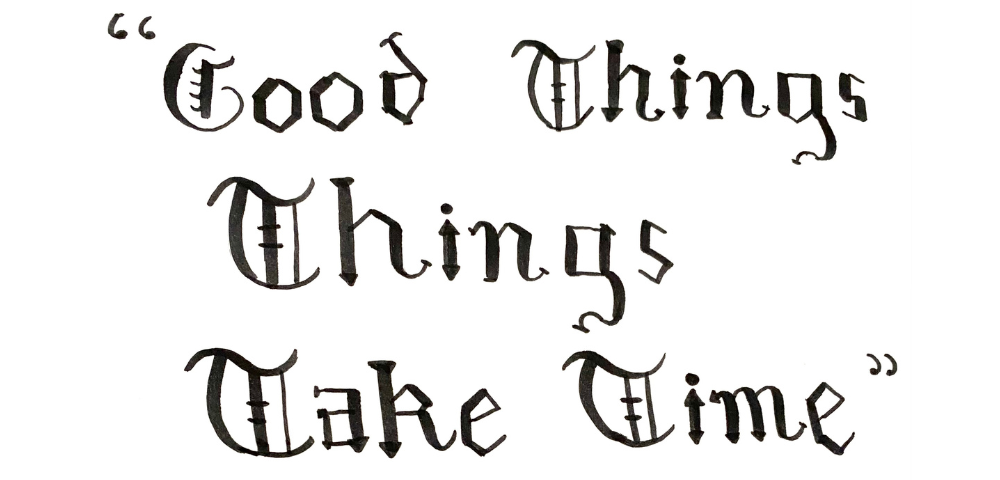 “Good Things
Things
Take Time”